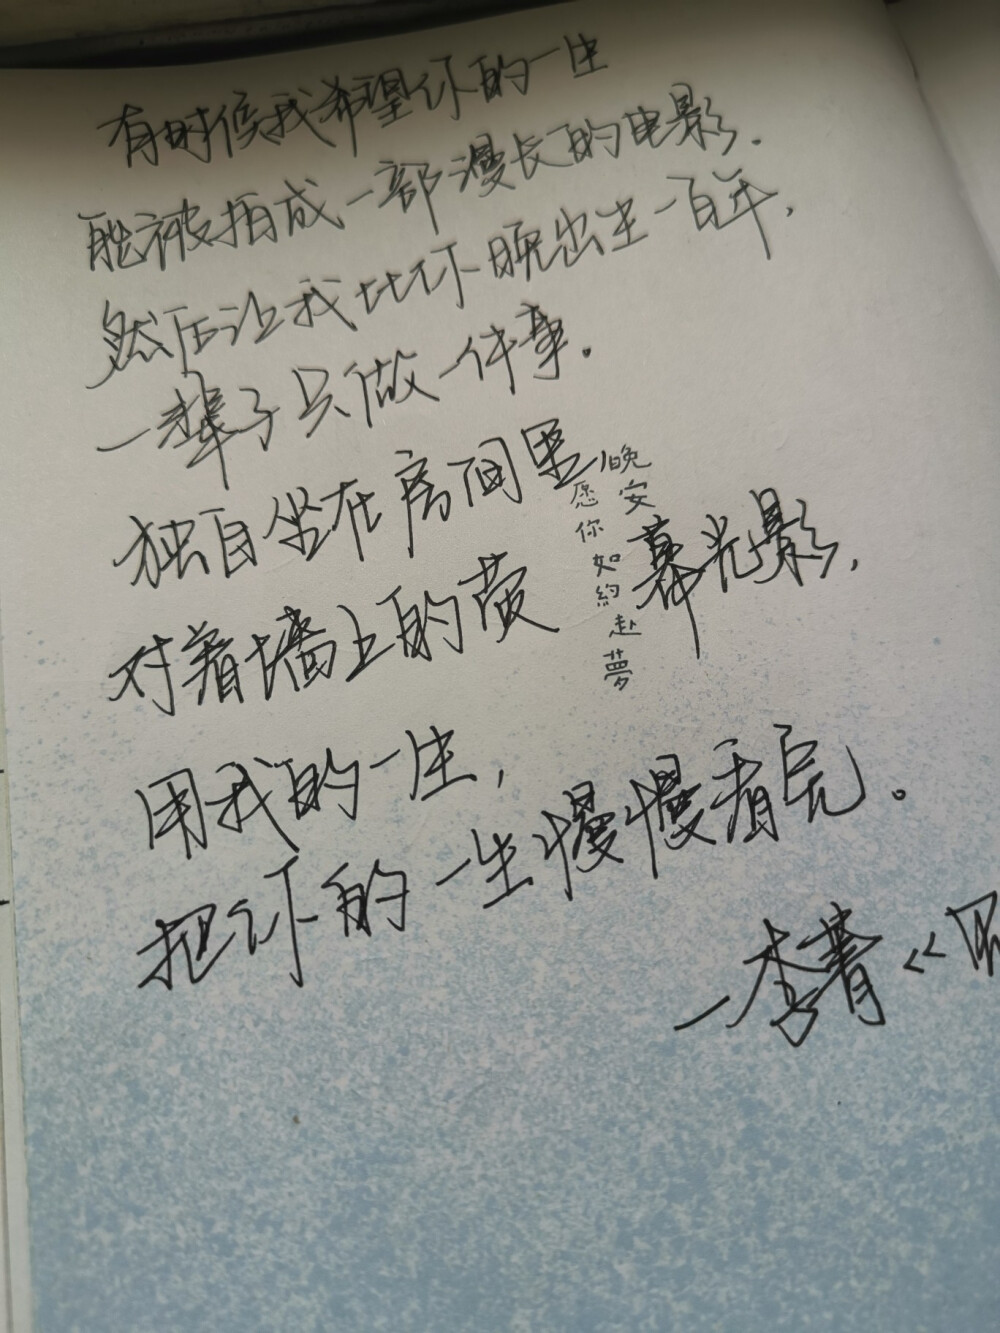 有时候我希望你的一生
能被拍成一部漫长的电影.
然后让我比你晚出生一百年,
一辈子只做一件事.
独自坐在房间里,
对着墙上的荧幕光影,
用我的一生,
把你的一生慢慢看完。
—李菁《
晚安
愿你如約赴夢